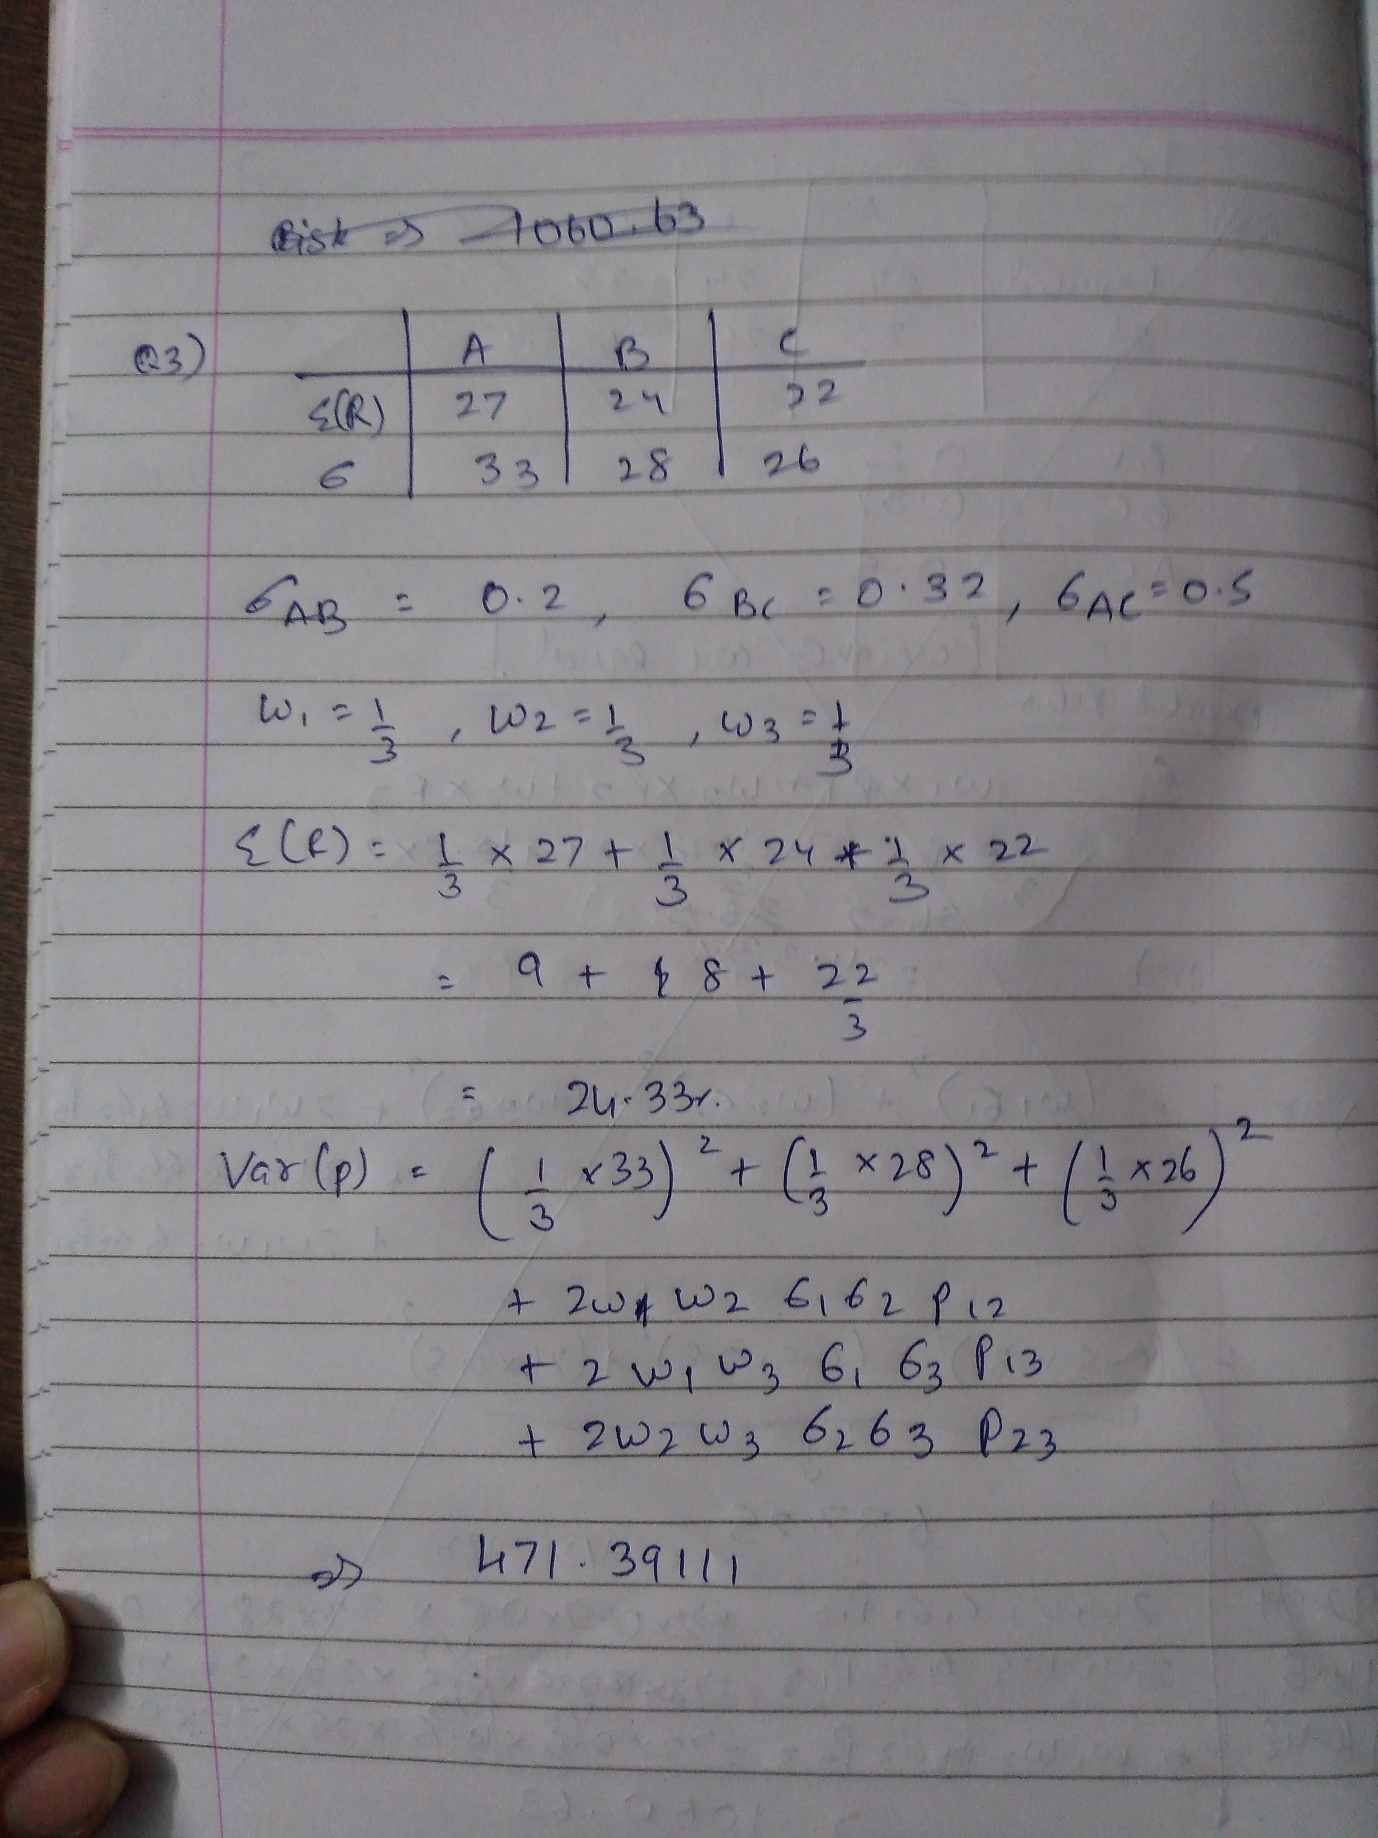 Risk ⇒ 1060.63
Q3)
A B C
Ɛ(R) 27 24 22
6 33 28 26
6AB = 0.2, 6BC = 0.32, 6AC = 0.5
W1 = 1/3, W2 = 1/3, W3 = 1/3
Ɛ(R) = 1/3 × 27 + 1/3 × 24 + 1/3 × 22
= 9 + 8 + 22/3
= 24.33%.
Var(p) = (1/3 × 33)² + (1/3 × 28)² + (1/3 × 26)²
+ 2W1 W2 6162 P12
+ 2 W1 W3 61 63 P13
+ 2W2 W3 6263 P23
⇒ 471.39111